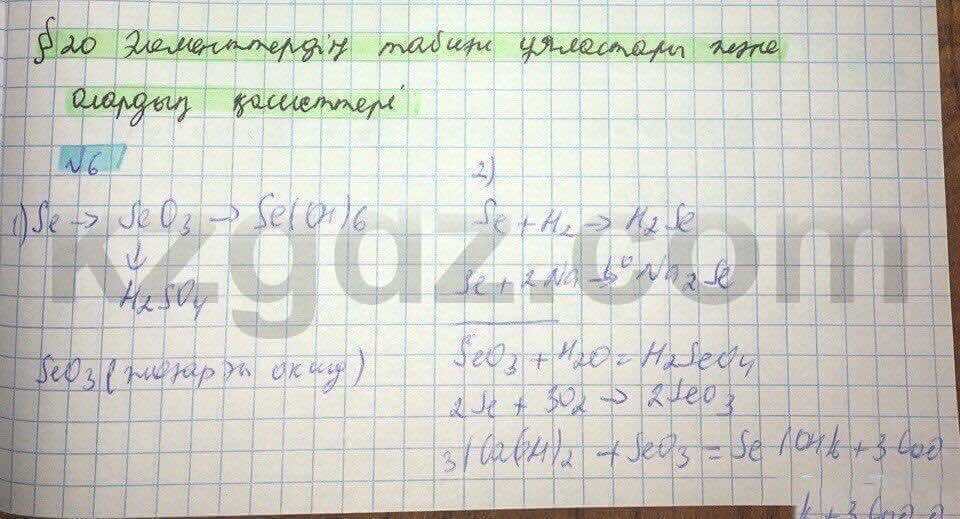 § 20 Элементтердің табиғи ұяластары және
олардың қасиеттері
№6
1) Se → SeO3 → Se(OH)6
↓
H2SO4
SeO3 ( оксид)
2)
Se + H2 → H2Se
Se + 2Na → t° Na2Se
SeO3 + H2O = H2SeO4
2Se + 3O2 → 2SeO3
3(Ca(OH)2 + SeO3 = Se (OH)6 + 3CaO
kzgdz.com